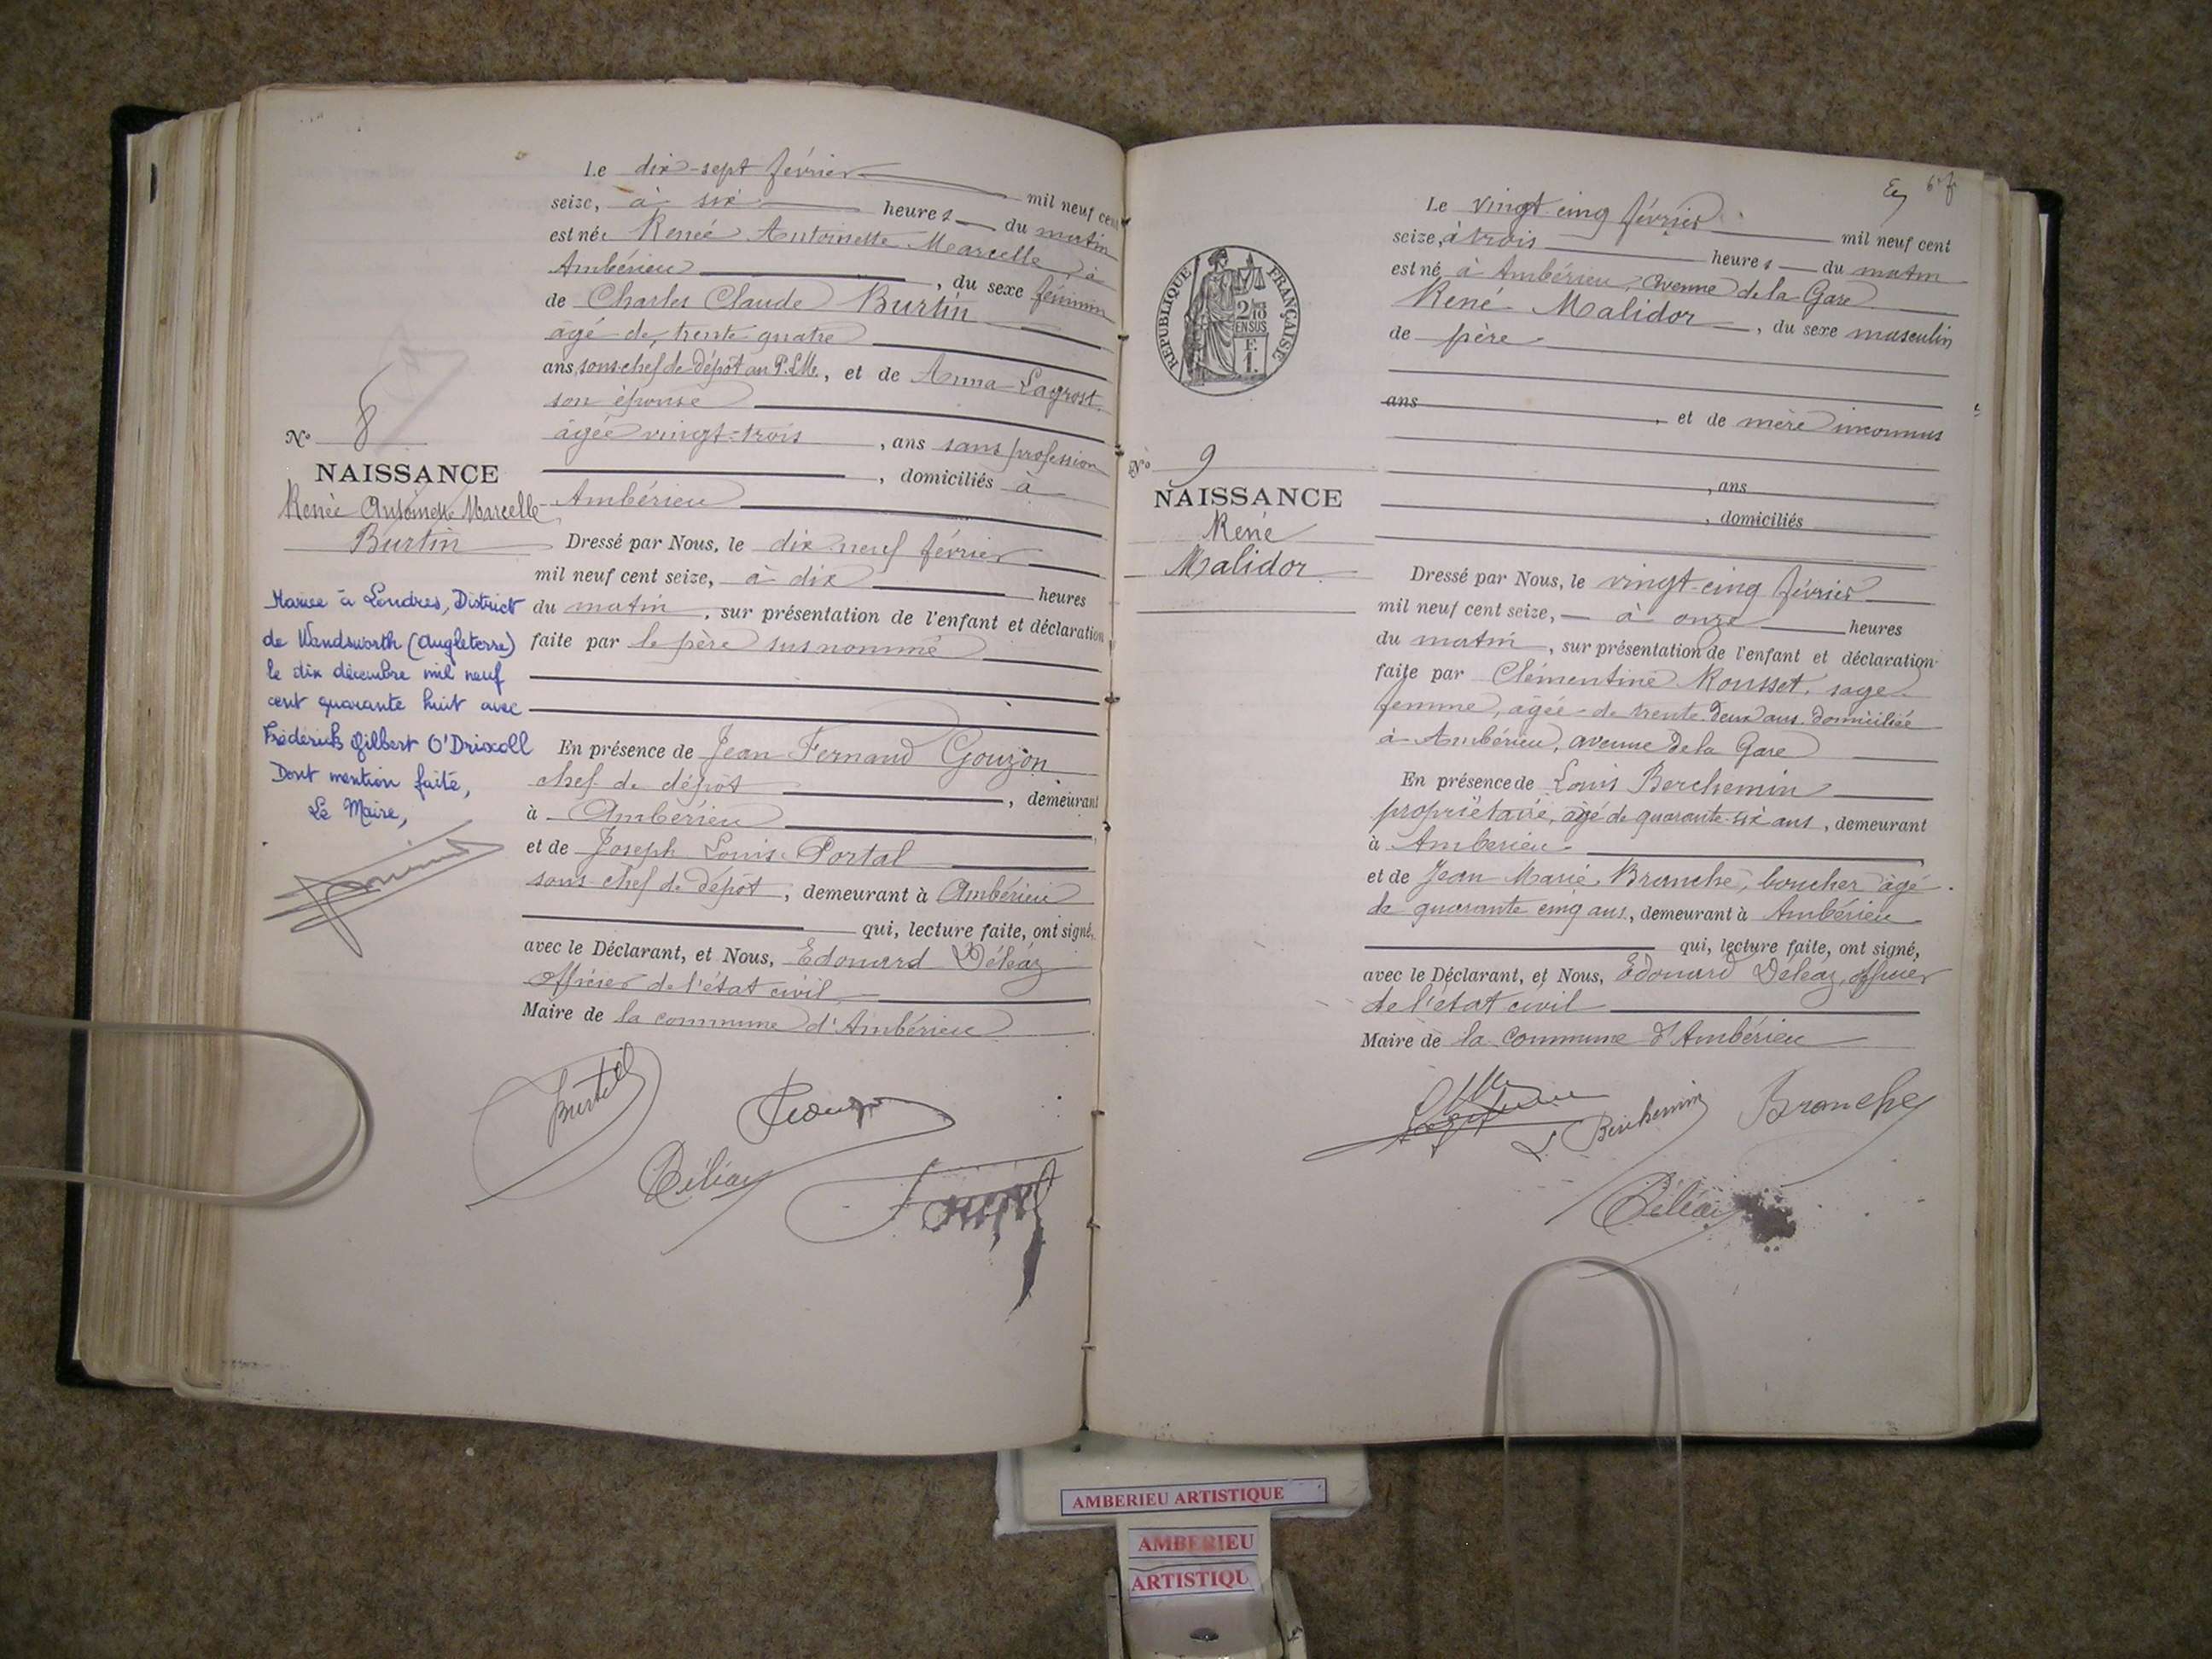 Le dix-sept février mil neuf cent
seize, à six heures du matin
est née Renée Antoinette Marcelle, à
Ambérieu, du sexe féminin
de Charles Claude Burtin
âgé de trente quatre
ans, sous-chef de dépôt au P.L.M., et de Anna Lagrost
son épouse
âgée vingt-trois, ans sans profession
, domiciliés à
Ambérieu
Dressé par Nous, le dix neuf février
mil neuf cent seize, à dix heures
du matin, sur présentation de l'enfant et déclaration
faite par le père susnommé
En présence de Jean Fernand Gouzon
chef de dépôt, demeurant
à Ambérieu
et de Joseph Louis Portal
sous-chef de dépôt, demeurant à Ambérieu
qui, lecture faite, ont signé,
avec le Déclarant, et Nous, Edouard Déléaz
officier de l'état civil
Maire de la commune d'Ambérieu
Burtin
Déléaz
N° 8
NAISSANCE
Renée Antoinette Marcelle
Burtin
Mariée à Londres, District
de Wandsworth (Angleterre)
le dix décembre mil neuf
cent quarante huit avec
Frédérick Gilbert O'Driscoll
Dont mention faite,
Le Maire,
6e f
REPUBLIQUE FRANÇAISE
2/10 EN SUS
F.
1.
N° 9
NAISSANCE
René
Malidor
Le vingt-cinq février mil neuf cent
seize, à trois heures du matin
est né à Ambérieu, avenue de la Gare
René Malidor, du sexe masculin
de père
ans, et de mère inconnus
, ans
, domiciliés
Dressé par Nous, le vingt-cinq février
mil neuf cent seize, à onze heures
du matin, sur présentation de l'enfant et déclaration
faite par Clémentine Rousset, sage
femme, âgée de trente deux ans domiciliée
à Ambérieu, avenue de la Gare
En présence de Louis Berchemin
propriétaire, âgé de quarante-six ans, demeurant
à Ambérieu
et de Jean Marie Branche, boucher âgé
de quarante cinq ans, demeurant à Ambérieu
qui, lecture faite, ont signé,
avec le Déclarant, et Nous, Edouard Déléaz, officier
de l'état civil
Maire de la commune d'Ambérieu
L. Berchemin
Branche
Déléaz
AMBERIEU ARTISTIQUE
AMBERIEU
ARTISTIQU